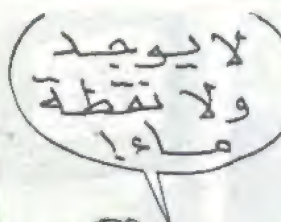 لا يوجد
ولا نقطة
ماء!